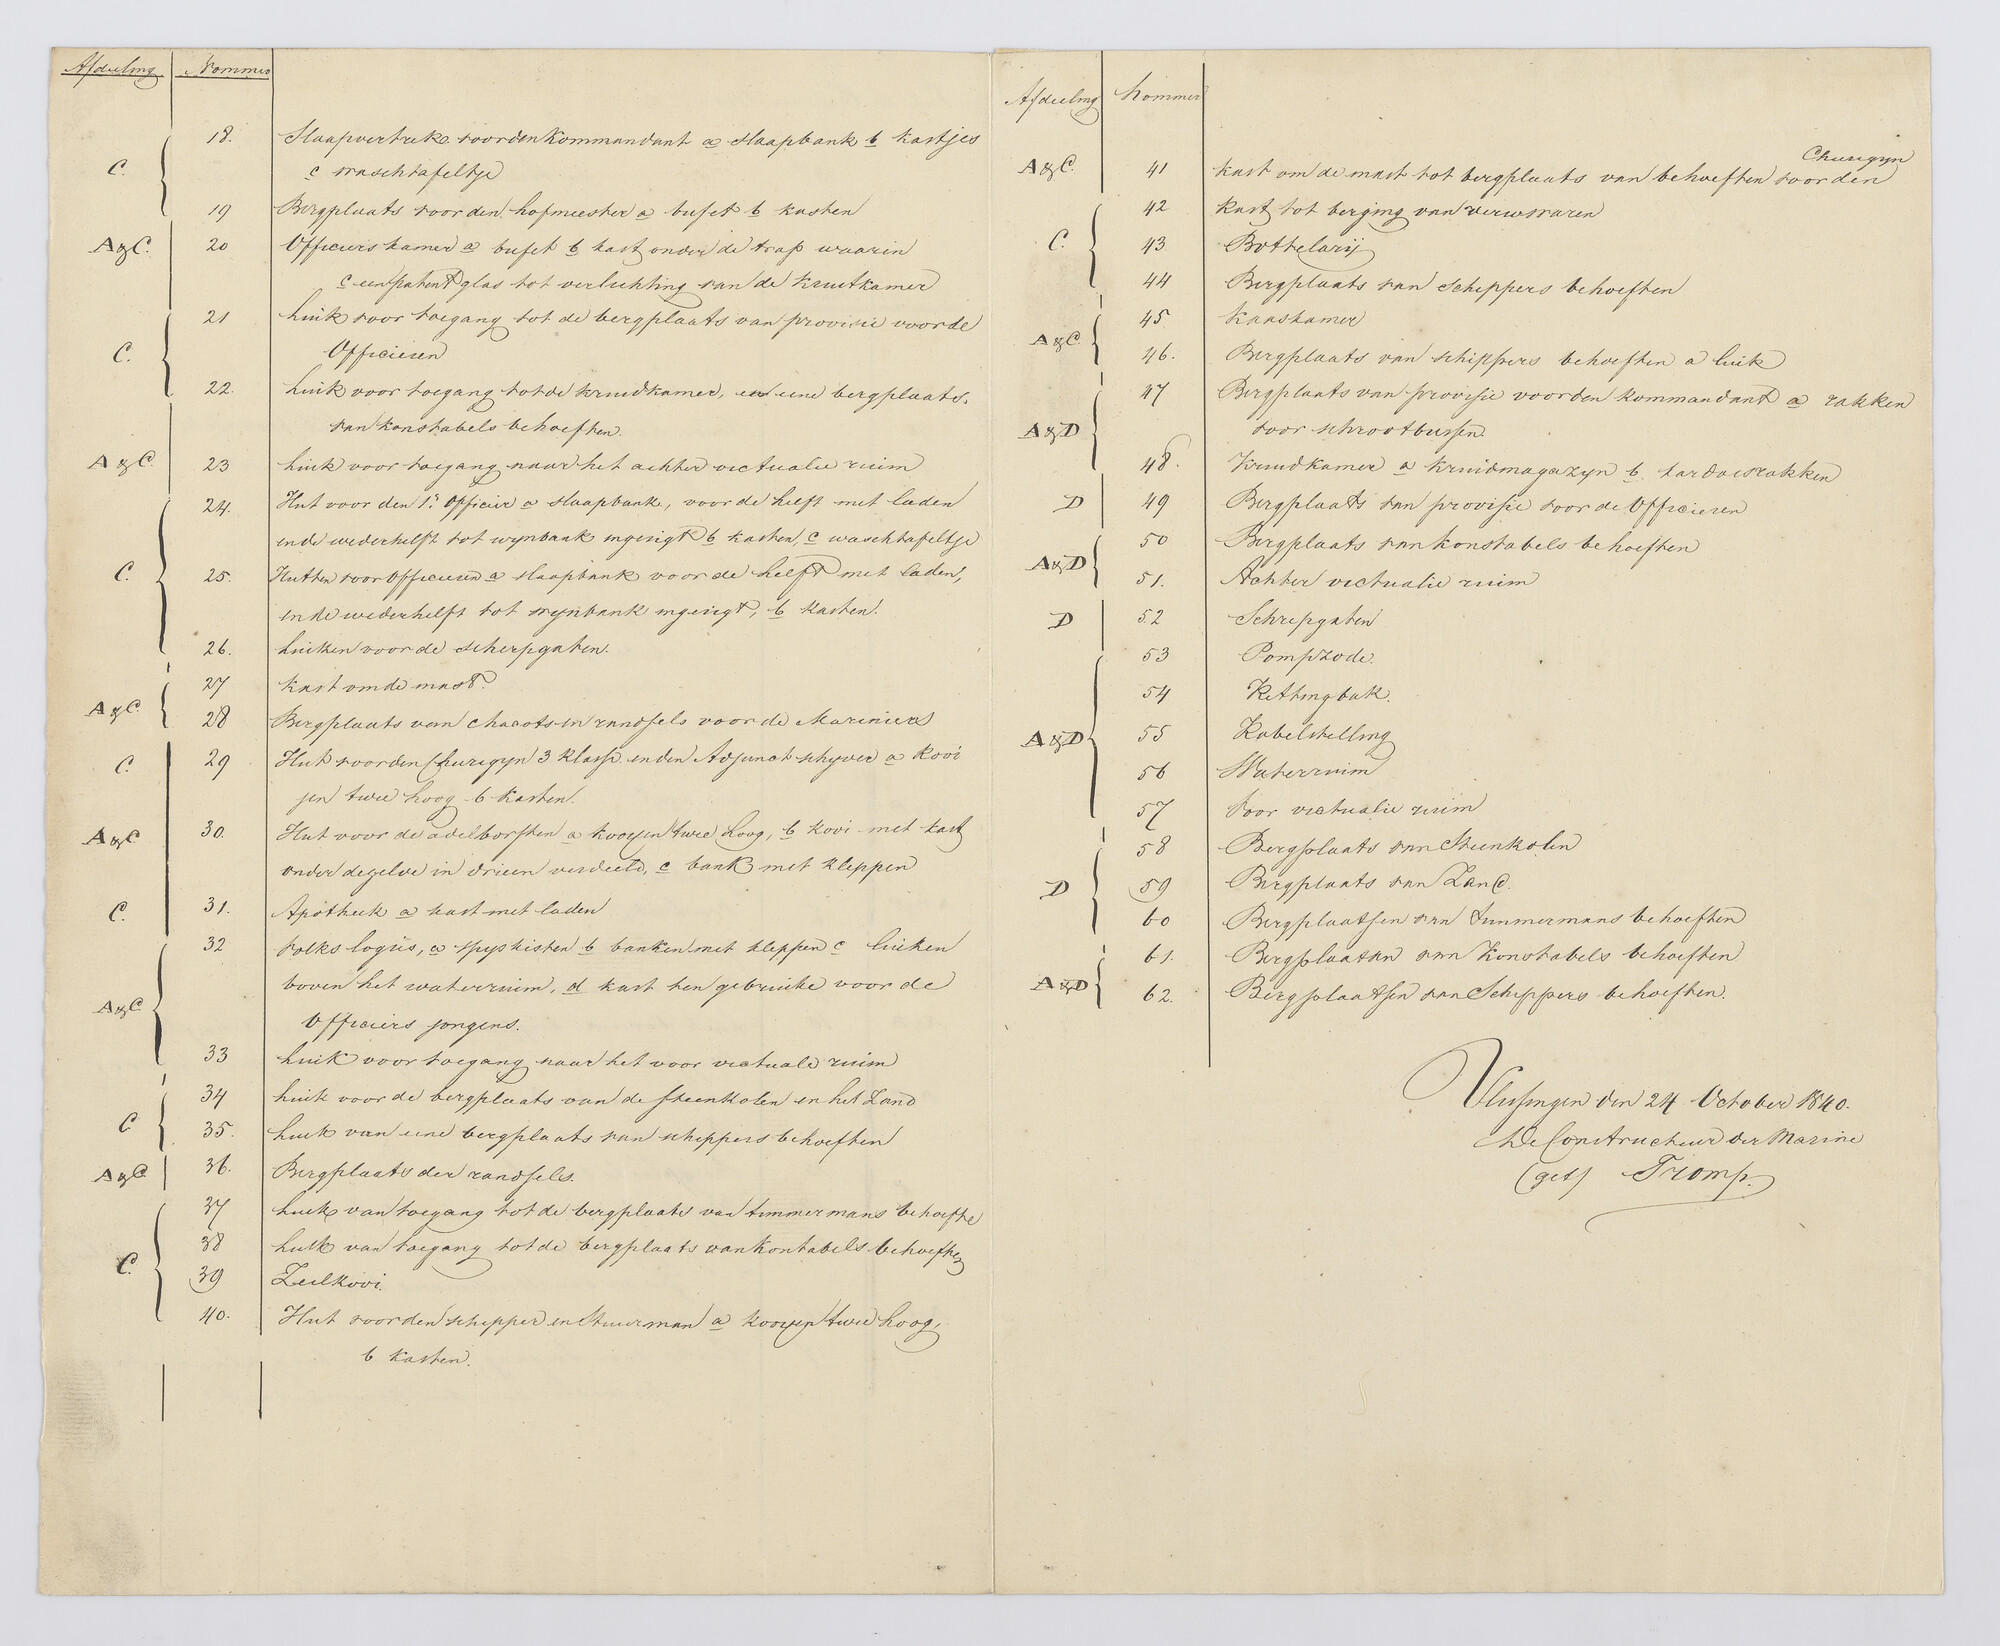 Afdeeling Nommer
18. Slaapvertrek voor den Kommandant a slaapbank b kastjes
C. c waschtafeltje
19 Bergplaats voor den hofmeester a bufet b kasten
A&C. 20 Officiers kamer a bufet b kast onder de trap waarin
c een patent glas tot verluchting van de kruitkamer
21 luik voor toegang tot de bergplaats van provisie voor de
C. Officieren
22. luik voor toegang tot de kruidkamer, en eene bergplaats
van konstabels behoeften.
A&C 23 luik voor toegang naar het achter victualie ruim
24. Hut voor den 1e Officier a slaapbank, voor de helft met laden
en de wederhelft tot wynbank ingerigt b kasten, c waschtafeltje
C. 25. Hutten voor Officieren a slaapbank voor de helft met laden,
en de wederhelft tot wynbank ingerigt, b kasten.
26. luiken voor de scherpgaten.
27 kast om de mast.
A&C. 28 Bergplaats van chacots en randsels voor de Mariniers
C. 29 Hut voor den Churugyn 3 klasse en den Adjunct schryver a kooi
jen twee hoog b kasten.
A&C 30. Hut voor de adelborsten a kooyen twee hoog, b kooi met kast
onder dezelve in drieen verdeeld, c bank met kleppen
C. 31. Apotheek a kast met laden
32 volks logijs, a spyskisten b banken met kleppen c luiken
boven het waterruim, d kast ten gebruike voor de
A&C Officiers jongens.
33 luik voor toegang naar het voor victuale ruim
34 luik voor de bergplaats van de steenkolen en het Zand
C 35. luik van eene bergplaats van schippers behoeften
A&C 36. Bergplaats der randsels.
37 luik van toegang tot de bergplaats van timmermans behoefte
38 luik van toegang tot de bergplaats van kontabels behoeften
C. 39 Zeilkooi.
40. Hut voor den schipper en Stuurman a kooyen twee hoog,
b kasten.
Afdeeling Nommer
Churugyn
A&C. 41 kast om de mast tot bergplaats van behoeften voor den
42 kast tot berging van verwwaren
C. 43 Bottelarij
44 Bergplaats van schippers behoeften
45 kaaskamer
A&C. 46. Bergplaats van schippers behoeften a luik
47 Bergplaats van provisie voor den kommandant a rakken
A&D voor schrootbussen.
48. Kruidkamer a kruidmagazyn b kardoesrakken
D 49 Bergplaats van provisie voor de Officieren
50 Bergplaats van konstabels behoeften
A&D 51. Achter victualie ruim
D 52 Scherpgaten
53 Pompzode.
54 Kettingbak.
A&D 55 Kabelstelling
56 Waterruim
57 Voor victualie ruim
58 Bergplaats van Steenkolen
D 59 Bergplaats van Zand.
60 Bergplaatsen van timmermans behoeften
61. Bergplaatsen van Konstabels behoeften
A&D 62. Bergplaatsen van Schippers behoeften.
Vlissingen den 24 October 1840.
De Constructeur der Marine
(get) Tromp.